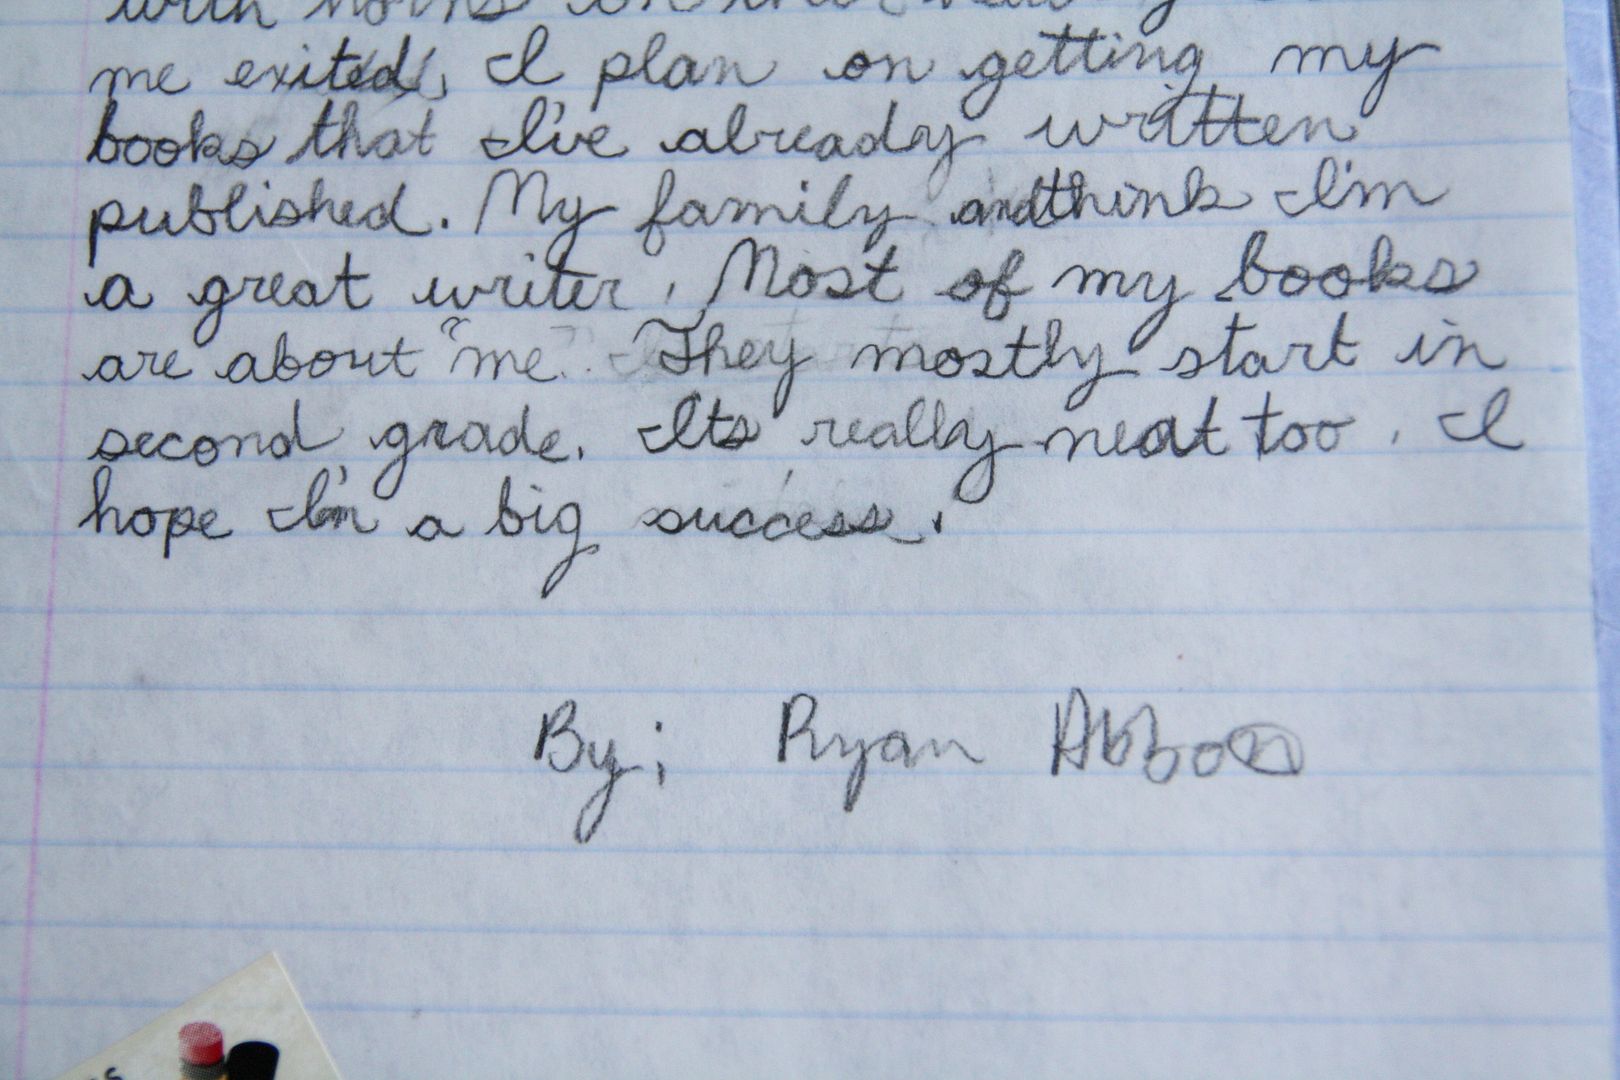 with horns on
me exited, I plan on getting my
books that I've already written
published. My family andthink I'm
a great writer. Most of my books
are about "me". They mostly start in
second grade. Its really neat too. I
hope I'm a big success.
By; Ryan